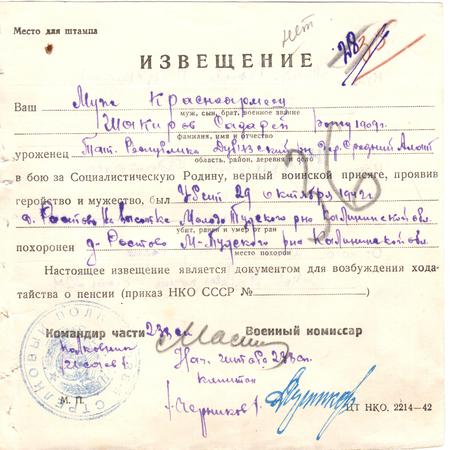 Место для штампа
нет
283/5
ИЗВЕЩЕНИЕ
Ваш Муж Красноармеец
муж, сын, брат, военное звание
Шакиров Садарей 1909г.
фамилия, имя и отчество
уроженец Тат. Республика дер. Средний
область, район, деревня и село
в бою за Социалистическую Родину, верный воинской присяге, проявив
геройство и мужество, был Убит 29 октября 1942г
д. Ростово Молого Тудского р-но Калининской обл.
убит, ранен и умер от ран
похоронен д. Ростово М-Тудского р-но Калининской обл.
место похорон
Настоящее извещение является документом для возбуждения хода-
тайства о пенсии (приказ НКО СССР №
36
Командир части 238сп Военный комиссар
полковник Нач. штаба 238сп.
капитан
М. П. /Черников/.
ЦТ НКО. 2214—42